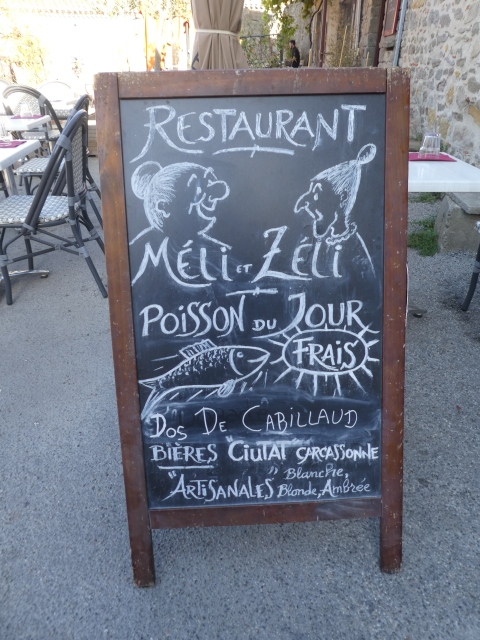 RESTAURANT
MÉLI ET ZÉLI
POISSON DU JOUR
FRAIS
DOS DE CABILLAUD
BIÈRES "CIUTAT" CARCASSONNE
"ARTISANALES" Blanche,
Blonde, Ambrée